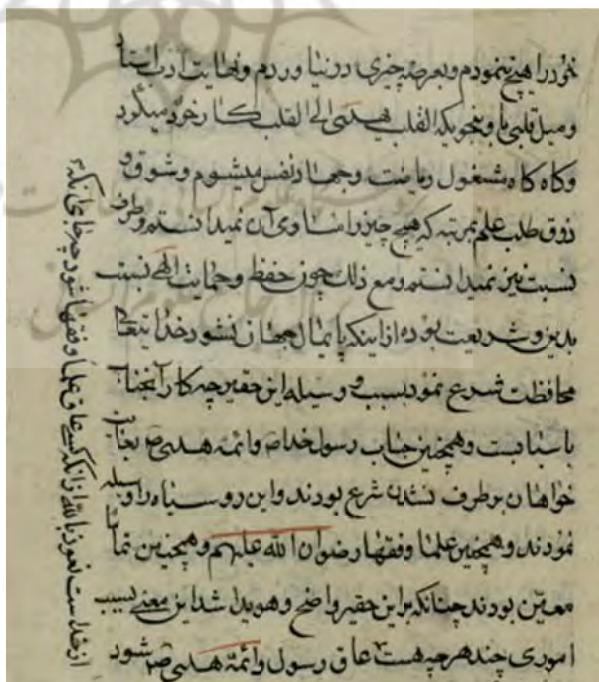 خود را هیچ ننمودم و بعرضه چیزی در نیاوردم و نهایت
و میل قلبی با و بنحویکه القلب یهدی الی القلب کار خود میکرد
و کاه کاه مشغول ریاضت و جهاد نفس میشوم و شوق و
ذوق طلب علم بمرتبه که هیچ چیز را مساوی آن نمیدانستم و طرف
نسبت نیز نمیدانستم و مع ذلک چون حفظ و حمایت الهی نسبت
بدین و شریعت بوده از اینکه پایمال جهان نشود خدایتعالی
محافظت شرع نمود بسبب و وسیله این حقیر چه کار آنجناب
باسبابست و همچنین جناب رسول خدا ص و ائمه هدی ص
خواهان برطرف نشدن شرع بودند و این رو سیاه را وسیله
نمودند و همچنین علما و فقها رضوان الله علیهم و همچنین
معین بودند چنانکه براین حقیر واضح و هویدا شد این معنی بسبب
اموری چند هرچه هست عاق رسول و ائمه هدی ص شود
از خداست نعوذ بالله از آنکه کسی عاق علما و فقها شود چه